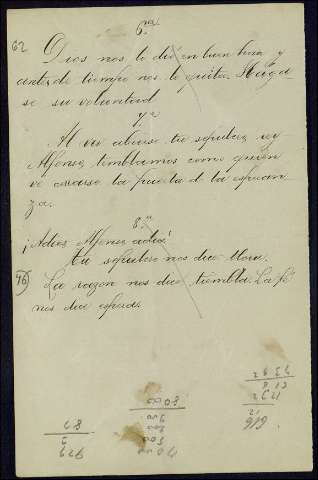 6.ª
62
Dios nos lo dió en buen hora y
antes de tiempo nos lo quita. Hága-
se su voluntad
7ª
Al ver abrirse tu sepulcro, rey
Alfonso, temblamos como quien
ve cerrarse la puerta d la esperan-
za.
8.ª
¡Adios, Alfonso, adios!
Tu sepulcro nos dice llora.
46
La razon nos dice tiembla. La fé
nos dice espera.